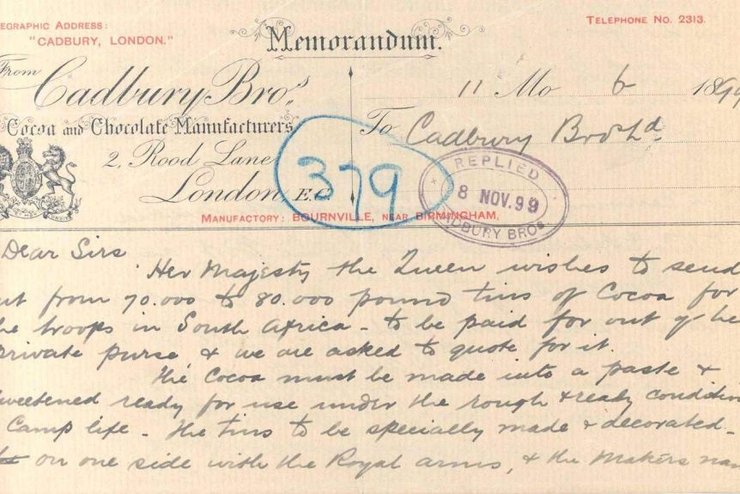 EGRAPHIC ADDRESS:
"CADBURY, LONDON."
Memorandum.
TELEPHONE No. 2313.
From
Cadbury Bros.
Cocoa and Chocolate Manufacturers
2, Rood Lane
London, E.C.
MANUFACTORY: BOURNVILLE, NEAR BIRMINGHAM.
11 Mo 6 1899
To Cadbury Bros Ld
379
REPLIED
8 NOV. 99
CADBURY BROS
Dear Sirs
Her Majesty the Queen wishes to send
ut from 70.000 to 80.000 pound tins of Cocoa for
he troops in South Africa - to be paid for out of he
private purse & we are asked to quote for it.
The Cocoa must be made into a paste &
sweetened ready for use under the rough & ready condition
Camp life - The tins to be specially made & decorated -
on one side with the Royal arms, & the Makers nam